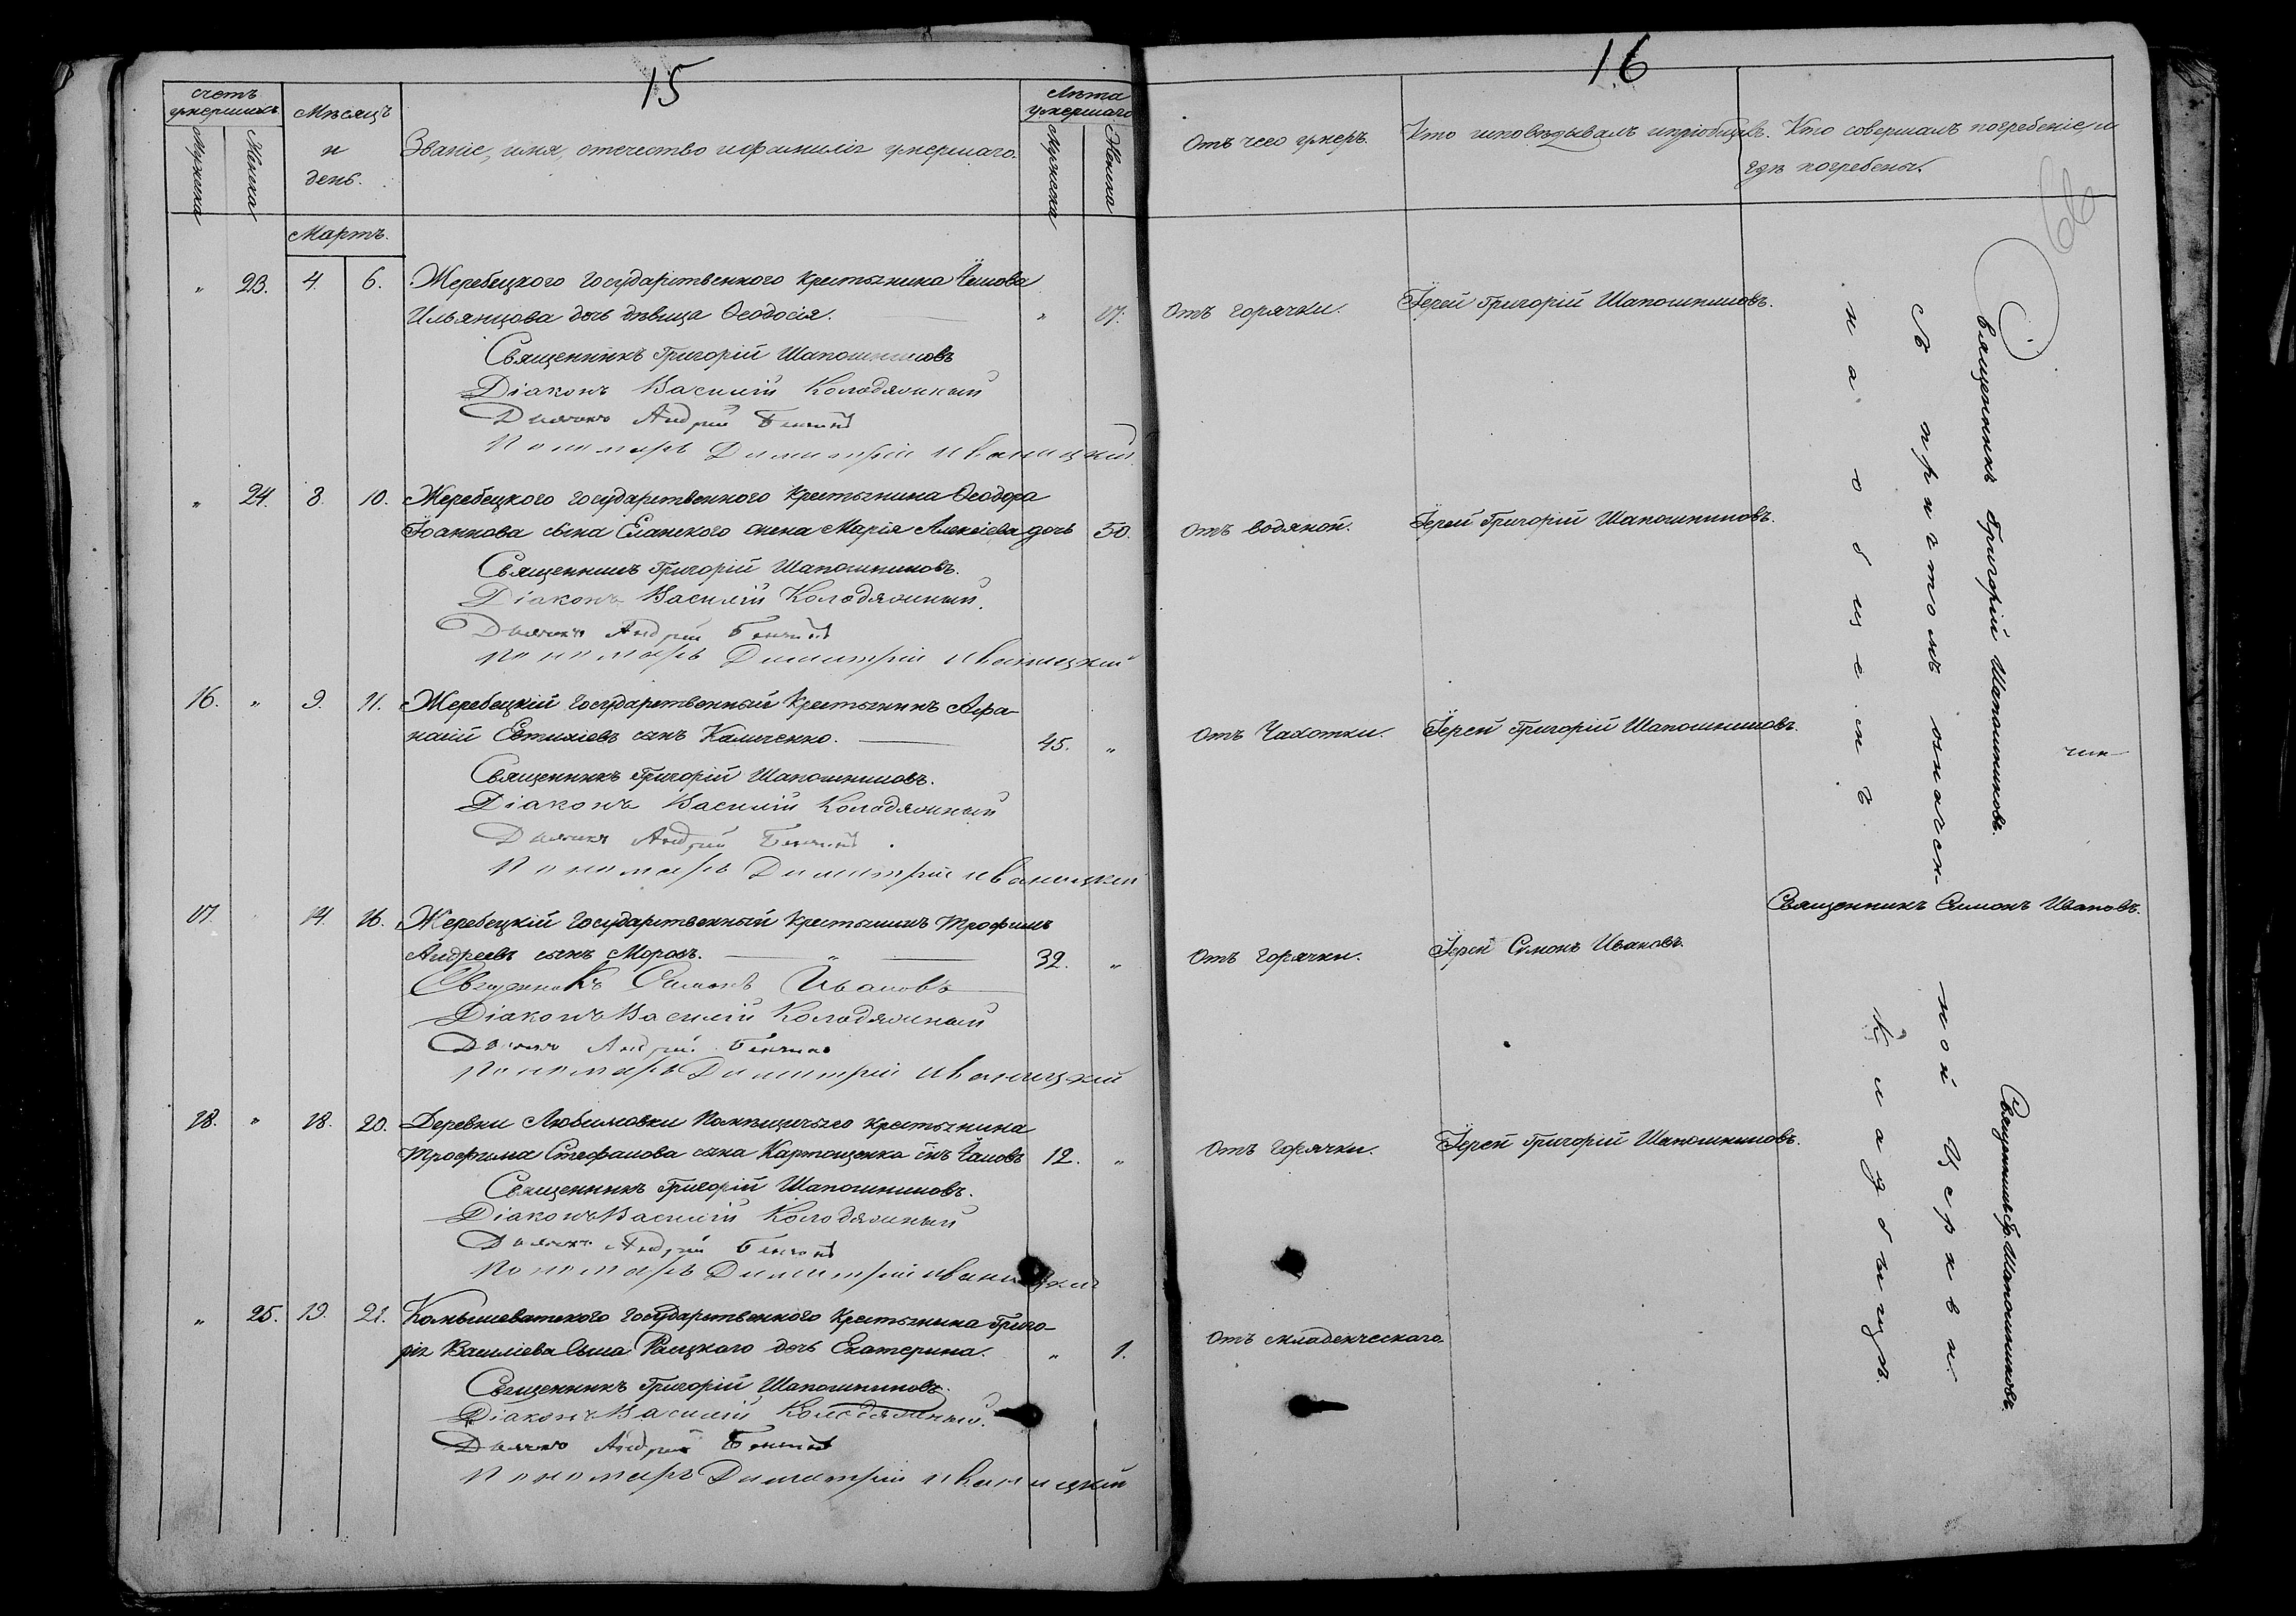 15
счетъ умершихъ
Мужеска
Женска
Мѣсяцъ и день.
Званіе, имя, отечество и фамилія умершаго.
Лѣта умершаго
Мужеска
Женска
Мартъ.
" 23. 4. 6. Жеребецкого государственного крестьянина
Ильянцова дочь дѣвица Ѳеодосія. " 17.
Священникъ Григорій Шапошниковъ
Діаконъ Василій Колодяжный
Дьячокъ Андрей
Пономарь Димитрій Иваницкий
" 24. 8. 10. Жеребецкого государственного крестьянина Ѳеодора
Іоаннова сына Еланского жена Марія Алексіева дочь 50.
Священникъ Григорій Шапошниковъ.
Діаконъ Василій Колодяжный.
Дьячокъ Андрей
Пономарь Димитрій Иваницкий
16. " 9. 11. Жеребецкій государственный крестьянинъ Афа-
насій Евтихіевъ сынъ Каличенко. 45. "
Священникъ Григорій Шапошниковъ.
Діаконъ Василій Колодяжный
Дьячокъ Андрей
Пономарь Димитрій Иваницкий
17. 14. 16. Жеребецкій государственный крестьянинъ Трофимъ
Андреевъ сынъ Морозъ. " 32. "
Священникъ Симонъ Ивановъ
Діаконъ Василій Колодяжный
Дьячокъ Андрей
Пономарь Димитрій Иваницкий
18. " 18. 20. Деревни Любимовки помѣщичьего крестьянина
Трофима Стефанова сына Картощенка сնъ 12. "
Священникъ Григорій Шапошниковъ.
Діаконъ Василій Колодяжный
Дьячокъ Андрей
Пономарь Димитрій Иваницкий
" 25. 19. 21. Комышеватского государственного крестьянина Григо-
рія Василіева сына Раицкаго дочь Екатерина. " 1.
Священникъ Григорій Шапошниковъ.
Діаконъ Василій Колодяжный.
Дьячокъ Андрей
Пономарь Димитрій Иваницкий
16
Отъ чего умеръ.
Кто исповѣдывалъ и пріобщалъ.
Кто совершалъ погребеніе, и
гдѣ погребены.
66
Отъ горячки. Іерей Григорій Шапошниковъ.
Отъ водяной. Іерей Григорій Шапошниковъ.
Отъ Чахотки. Іерей Григорій Шапошниковъ.
Отъ горячки. Іерей Симонъ Ивановъ.
Отъ горячки. Іерей Григорій Шапошниковъ.
Отъ младенческаго
Священникъ Григорій Шапошниковъ.
съ причтомъ означен-
на общемъ
Священникъ Симонъ Ивановъ.
Священникъ Гр. Шапошниковъ.
ной Церкви.
Кладбищѣ.